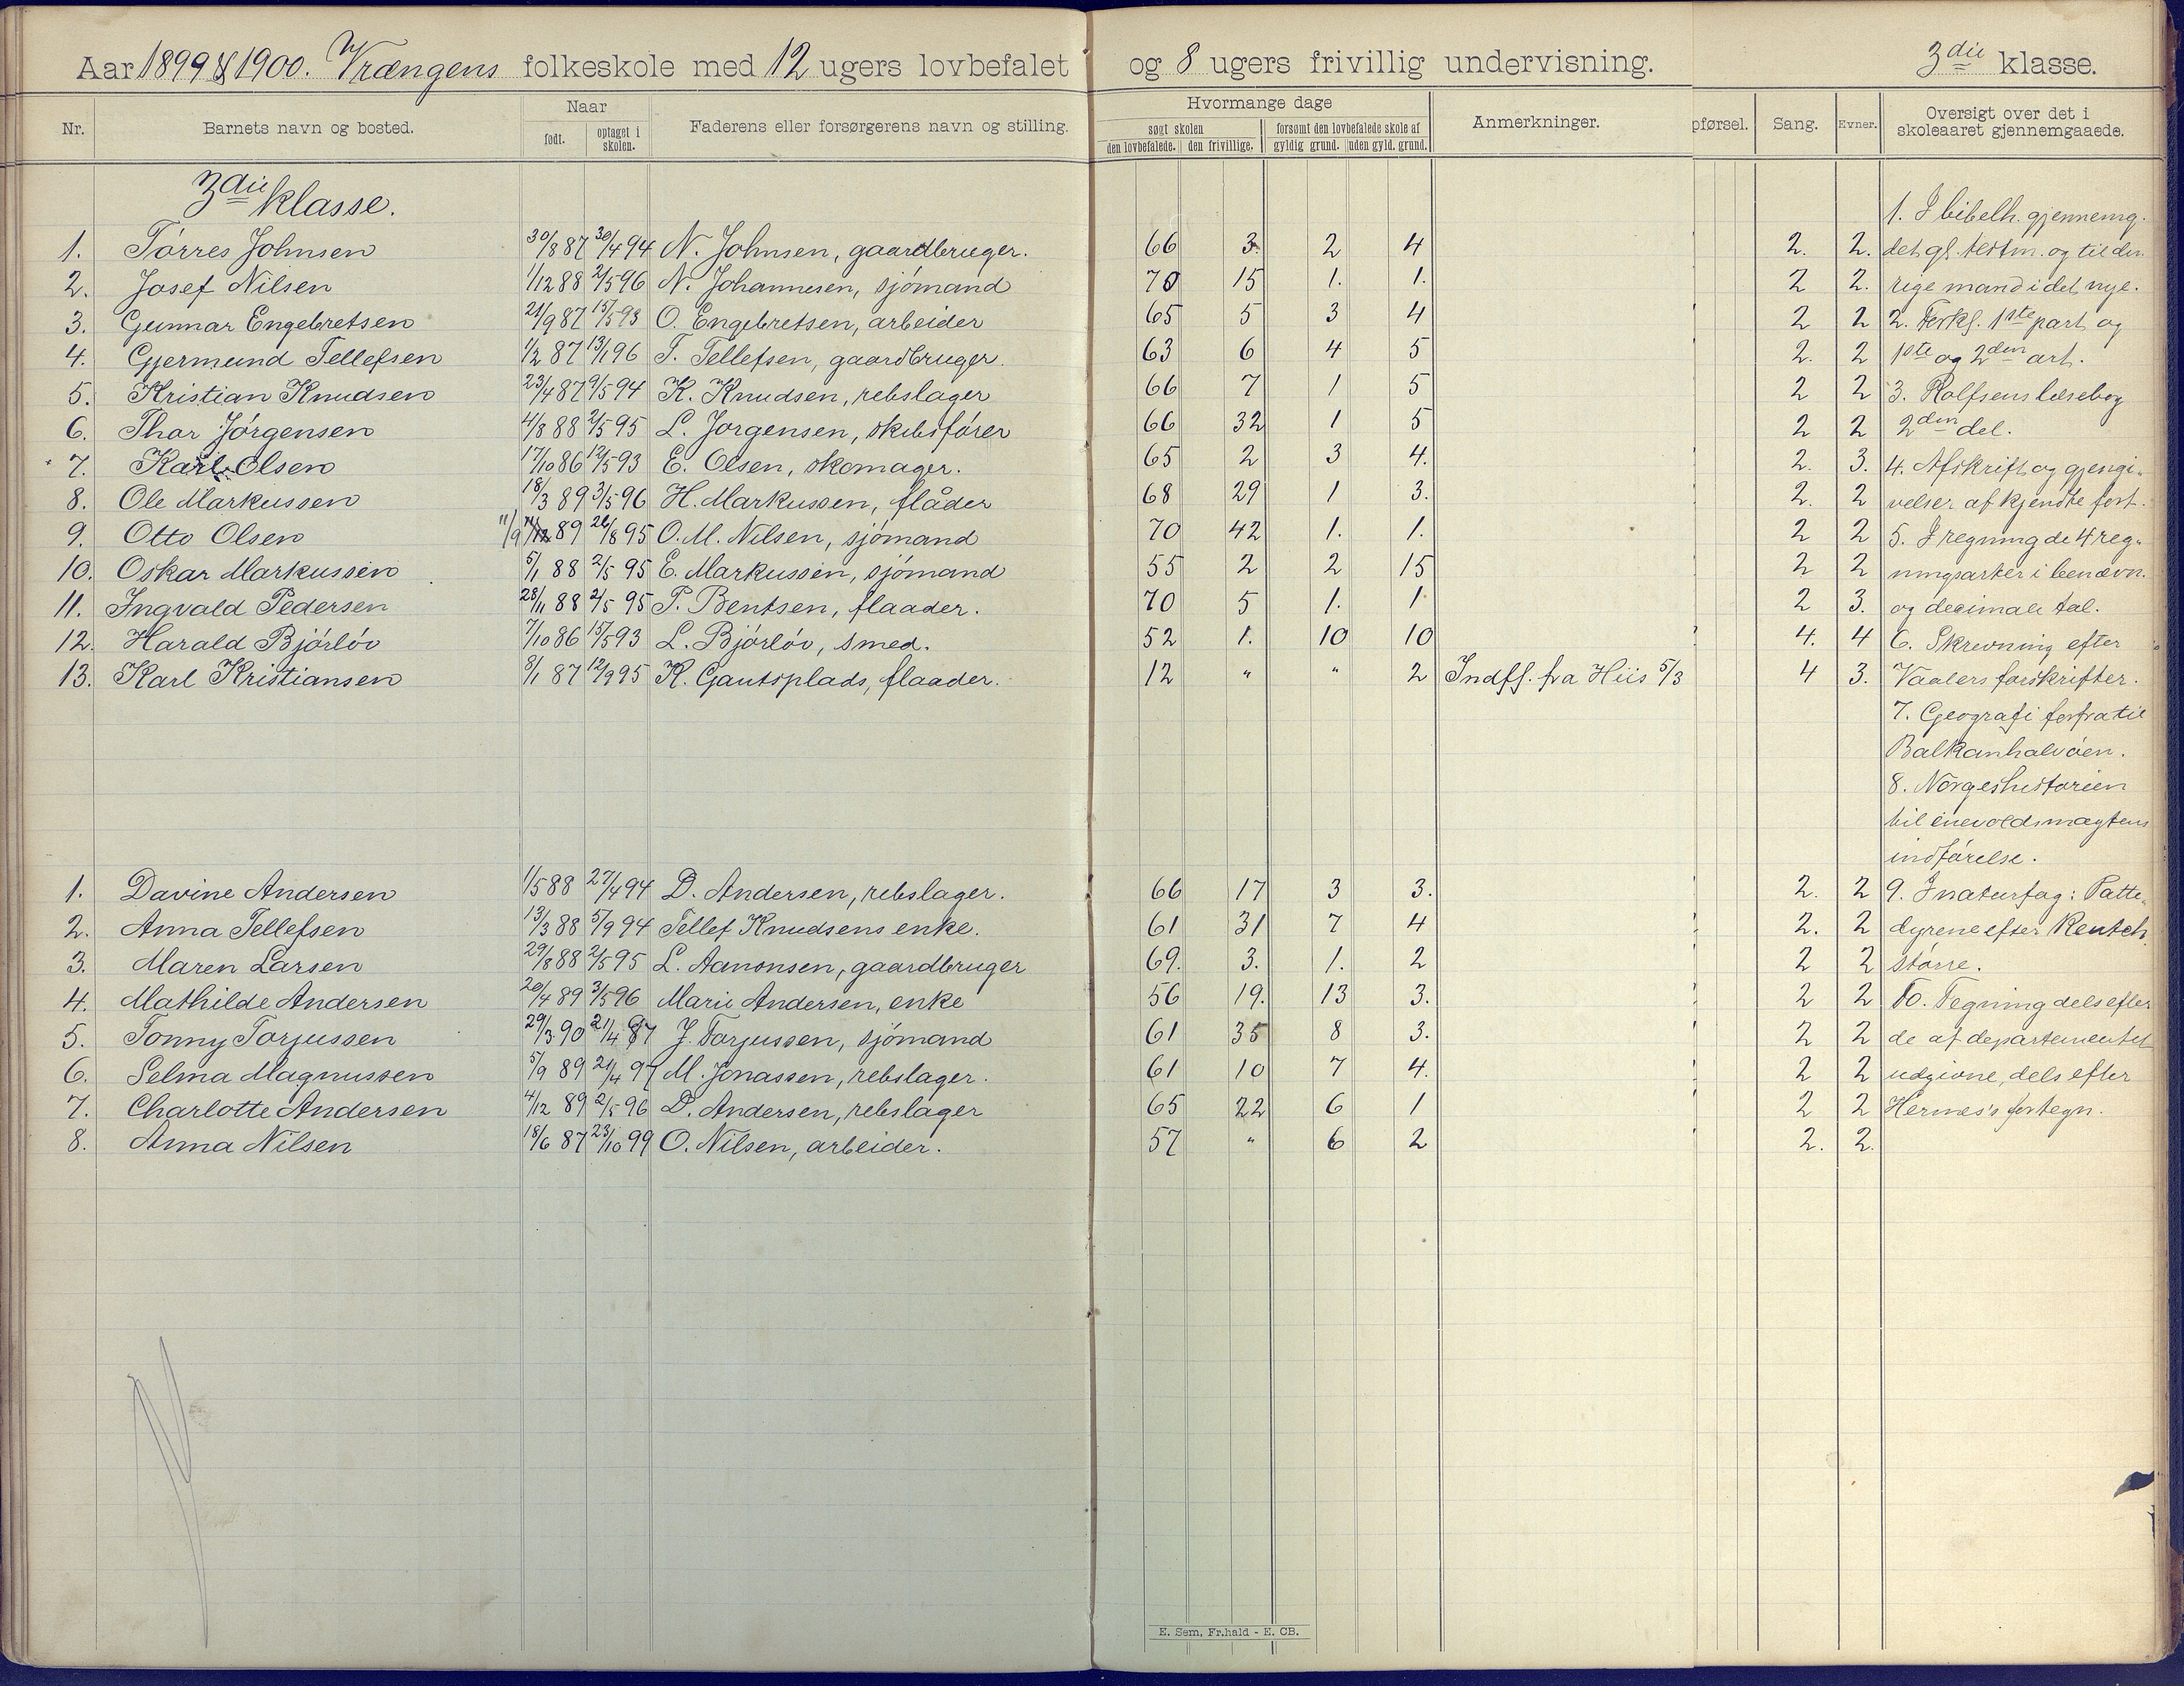 Aar 1899 & 1900. Vrængens folkeskole med 12 ugers lovbefalet og 8 ugers frivillig undervisning. 3die klasse.
Nr. Barnets navn og bosted. Naar født. optaget i skolen. Faderens eller forsørgerens navn og stilling. Hvormange dage søgt skolen den lovbefalede. den frivillige. forsømt den lovbefalede skole af gyldig grund. uden gyld. grund. Anmerkninger. pførsel. Sang. Evner. Oversigt over det i skoleaaret gjennemgaaede.
3die klasse.
1. I bibelh. gjennemg.
1. Tørres Johnsen 30/8 87 30/4 94 N. Johnsen, gaardbruger. 66 3. 2 4 2. 2. det gl. testm. og til den
2. Josef Nilsen 1/12 88 2/5 96 N. Johannesen, sjømand 70 15 1. 1. 2 2. rige mand i det nye.
3. Gunnar Engebretsen 21/9 87 15/5 93 O. Engebretsen, arbeider 65 5 3 4 2 2 2. Forkl. 1ste part og
4. Gjermund Tellefsen 1/2 87 13/1 96 T. Tellefsen, gaardbruger. 63 6 4 5 2. 2 1ste og 2den art.
5. Kristian Knudsen 23/4 87 9/5 94 K. Knudsen, rebslager 66 7 1 5 2 2 3. Rolfsens læsebog
6. Thor Jørgensen 4/8 88 2/5 95 L. Jørgensen, skibsfører 66 32 1 5 2 2 2den del.
7. Karl Olsen 17/10 86 12/5 93 E. Olsen, skomager. 65 2 3 4. 2. 3. 4. Afskrift og gjengi-
8. Ole Markussen 18/3 89 3/5 96 H. Markussen, flåder 68 29 1 3. 2. 2 velser af kjendte fort.
9. Otto Olsen 11/9 89 26/8 95 O. M. Nilsen, sjømand 70 42 1. 1. 2 2 5. I regning de 4 reg-
10. Oskar Markussen 5/1 88 2/5 95 E. Markussen, sjømand 55 2 2 15 2 2 ningsarter i benævn.
11. Ingvald Pedersen 28/11 88 2/5 95 P. Bentsen, flaader. 70 5 1. 1 2 3. og decimale tal.
12. Harald Bjørløv 7/10 86 15/5 93 L. Bjørløv, smed. 52 1. 10 10 4. 4 6. Skrivning efter
13. Karl Kristiansen 8/1 87 12/9 95 K. Gautsplads, flaader. 12 " " 2 Indfl. fra Hiis 5/3 4 3. Vaalers forskrifter.
7. Geografi forfra til
Balkanhalvøen.
8. Norgeshistorien
til enevoldsmagtens
indførelse.
1. Davine Andersen 1/5 88 27/4 94 D. Andersen, rebslager. 66 17 3 3. 2. 2 9. I naturfag: Patte-
2. Anna Tellefsen 13/3 88 5/9 94 Tellef Knudsens enke. 61 31 7 4 2. 2 dyrene efter Kentch
3. Maren Larsen 29/8 88 2/5 95 L. Aanonsen, gaardbruger 69. 3. 1. 2 2 2 større.
4. Mathilde Andersen 20/4 89 3/5 96 Marie Andersen, enke 56 19. 13 3. 2 2 10. Tegning dels efter
5. Tonny Torjussen 29/3 90 21/4 97 J. Torjussen, sjømand 61 35 8 3. 2 2 de af departementet
6. Selma Magnussen 5/9 89 21/4 97 M. Jonassen, rebslager. 61 10 7 4. 2 2 udgivne, dels efter
7. Charlotte Andersen 4/12 89 2/5 96 D. Andersen, rebslager 65 22 6 1 2 2 Hermes's fortegn.
8. Anna Nilsen 18/6 87 23/10 99 O. Nilsen, arbeider. 57 " 6 2 2. 2.
E. Sem, Fr.hald - E. CB.